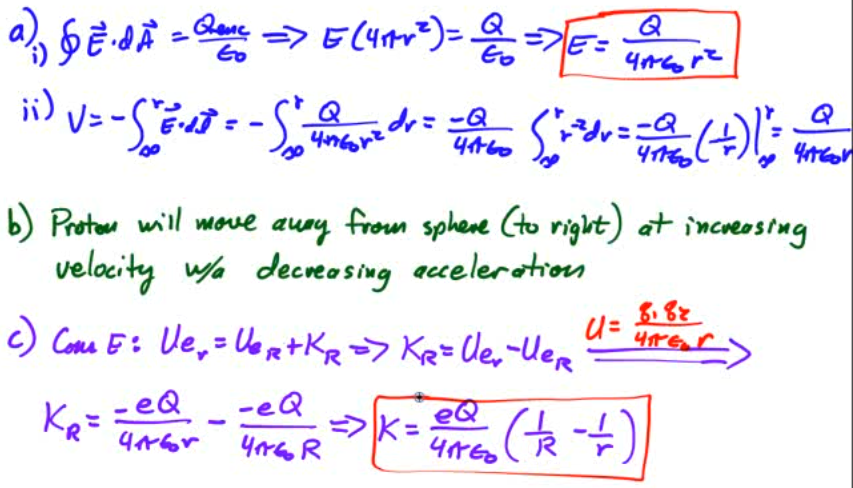 a) i) ∮ E⃗·dA⃗ = Qenc/ε₀ => E(4πr²) = Q/ε₀ => E = Q/(4πε₀r²)
ii) V = -∫_∞^r E⃗·dl⃗ = -∫_∞^r Q/(4πε₀r²) dr = -Q/(4πε₀) ∫_∞^r r⁻²dr = -Q/(4πε₀) (1/r)|_∞^r = Q/(4πε₀r
b) Proton will move away from sphere (to right) at increasing
velocity w/a decreasing acceleration
c) Cons E: Ue_r = Ue_R + K_R => K_R = Ue_r - Ue_R U = q₁q₂/(4πε₀r) =>
K_R = -eQ/(4πε₀r) - -eQ/(4πε₀R) => K = eQ/(4πε₀) (1/R - 1/r)